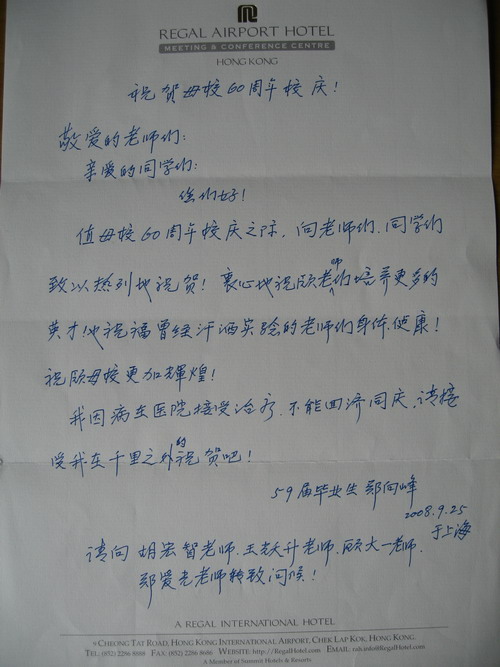 REGAL AIRPORT HOTEL
MEETING & CONFERENCE CENTRE
HONG KONG
祝贺母校60周年校庆！
敬爱的老师们：
亲爱的同学们：
您们好！
值母校60周年校庆之际，向老师们、同学们
致以热烈地祝贺！衷心地祝愿老师们培养更多的
英才！也祝福曾经汗洒实验的老师们身体健康！
祝愿母校更加辉煌！
我因病在医院接受治疗，不能回济同庆，请接
受我在千里之外的祝贺吧！
59届毕业生 邹向峰
2008.9.25
于上海
请向 胡宏智老师、王跃升老师、顾大一老师、
邹爱光老师转致问候！
A REGAL INTERNATIONAL HOTEL
9 CHEONG TAT ROAD, HONG KONG INTERNATIONAL AIRPORT, CHEK LAP KOK, HONG KONG.
TEL: (852) 2286 8888 FAX: (852) 2286 8686 WEBSITE: http://RegalHotel.com EMAIL: rah.info@RegalHotel.com
A Member of Summit Hotels & Resorts